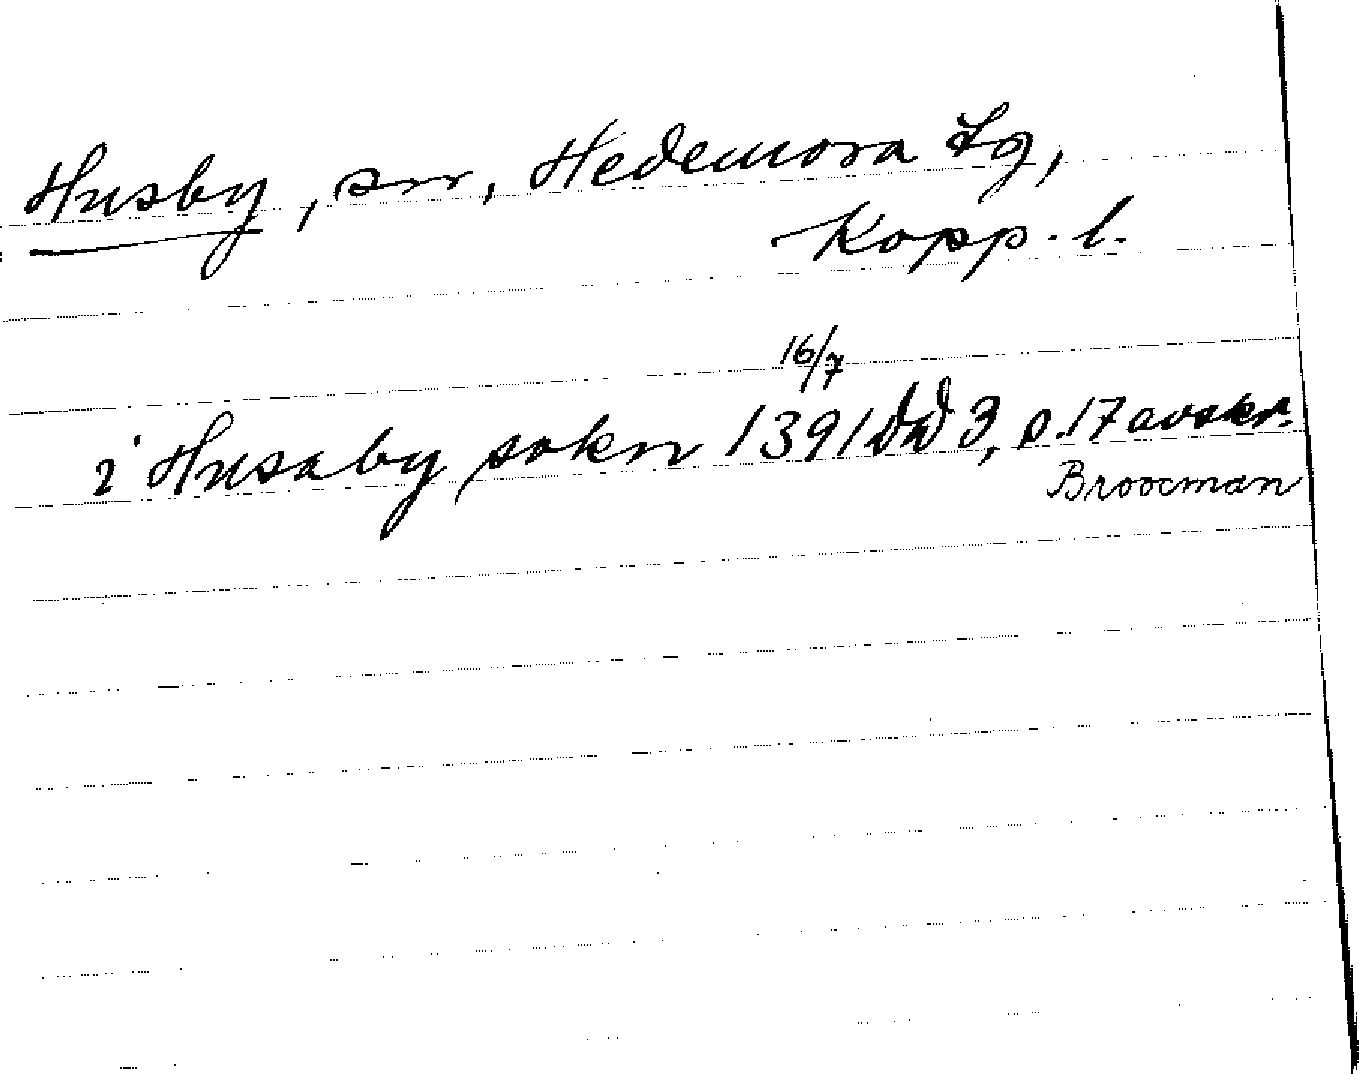 Husby, sn, Hedemora tg,
Kopp. l.
i Husaby sokn 16/7 1391 DD 3, s. 17 avskr.
Broocman